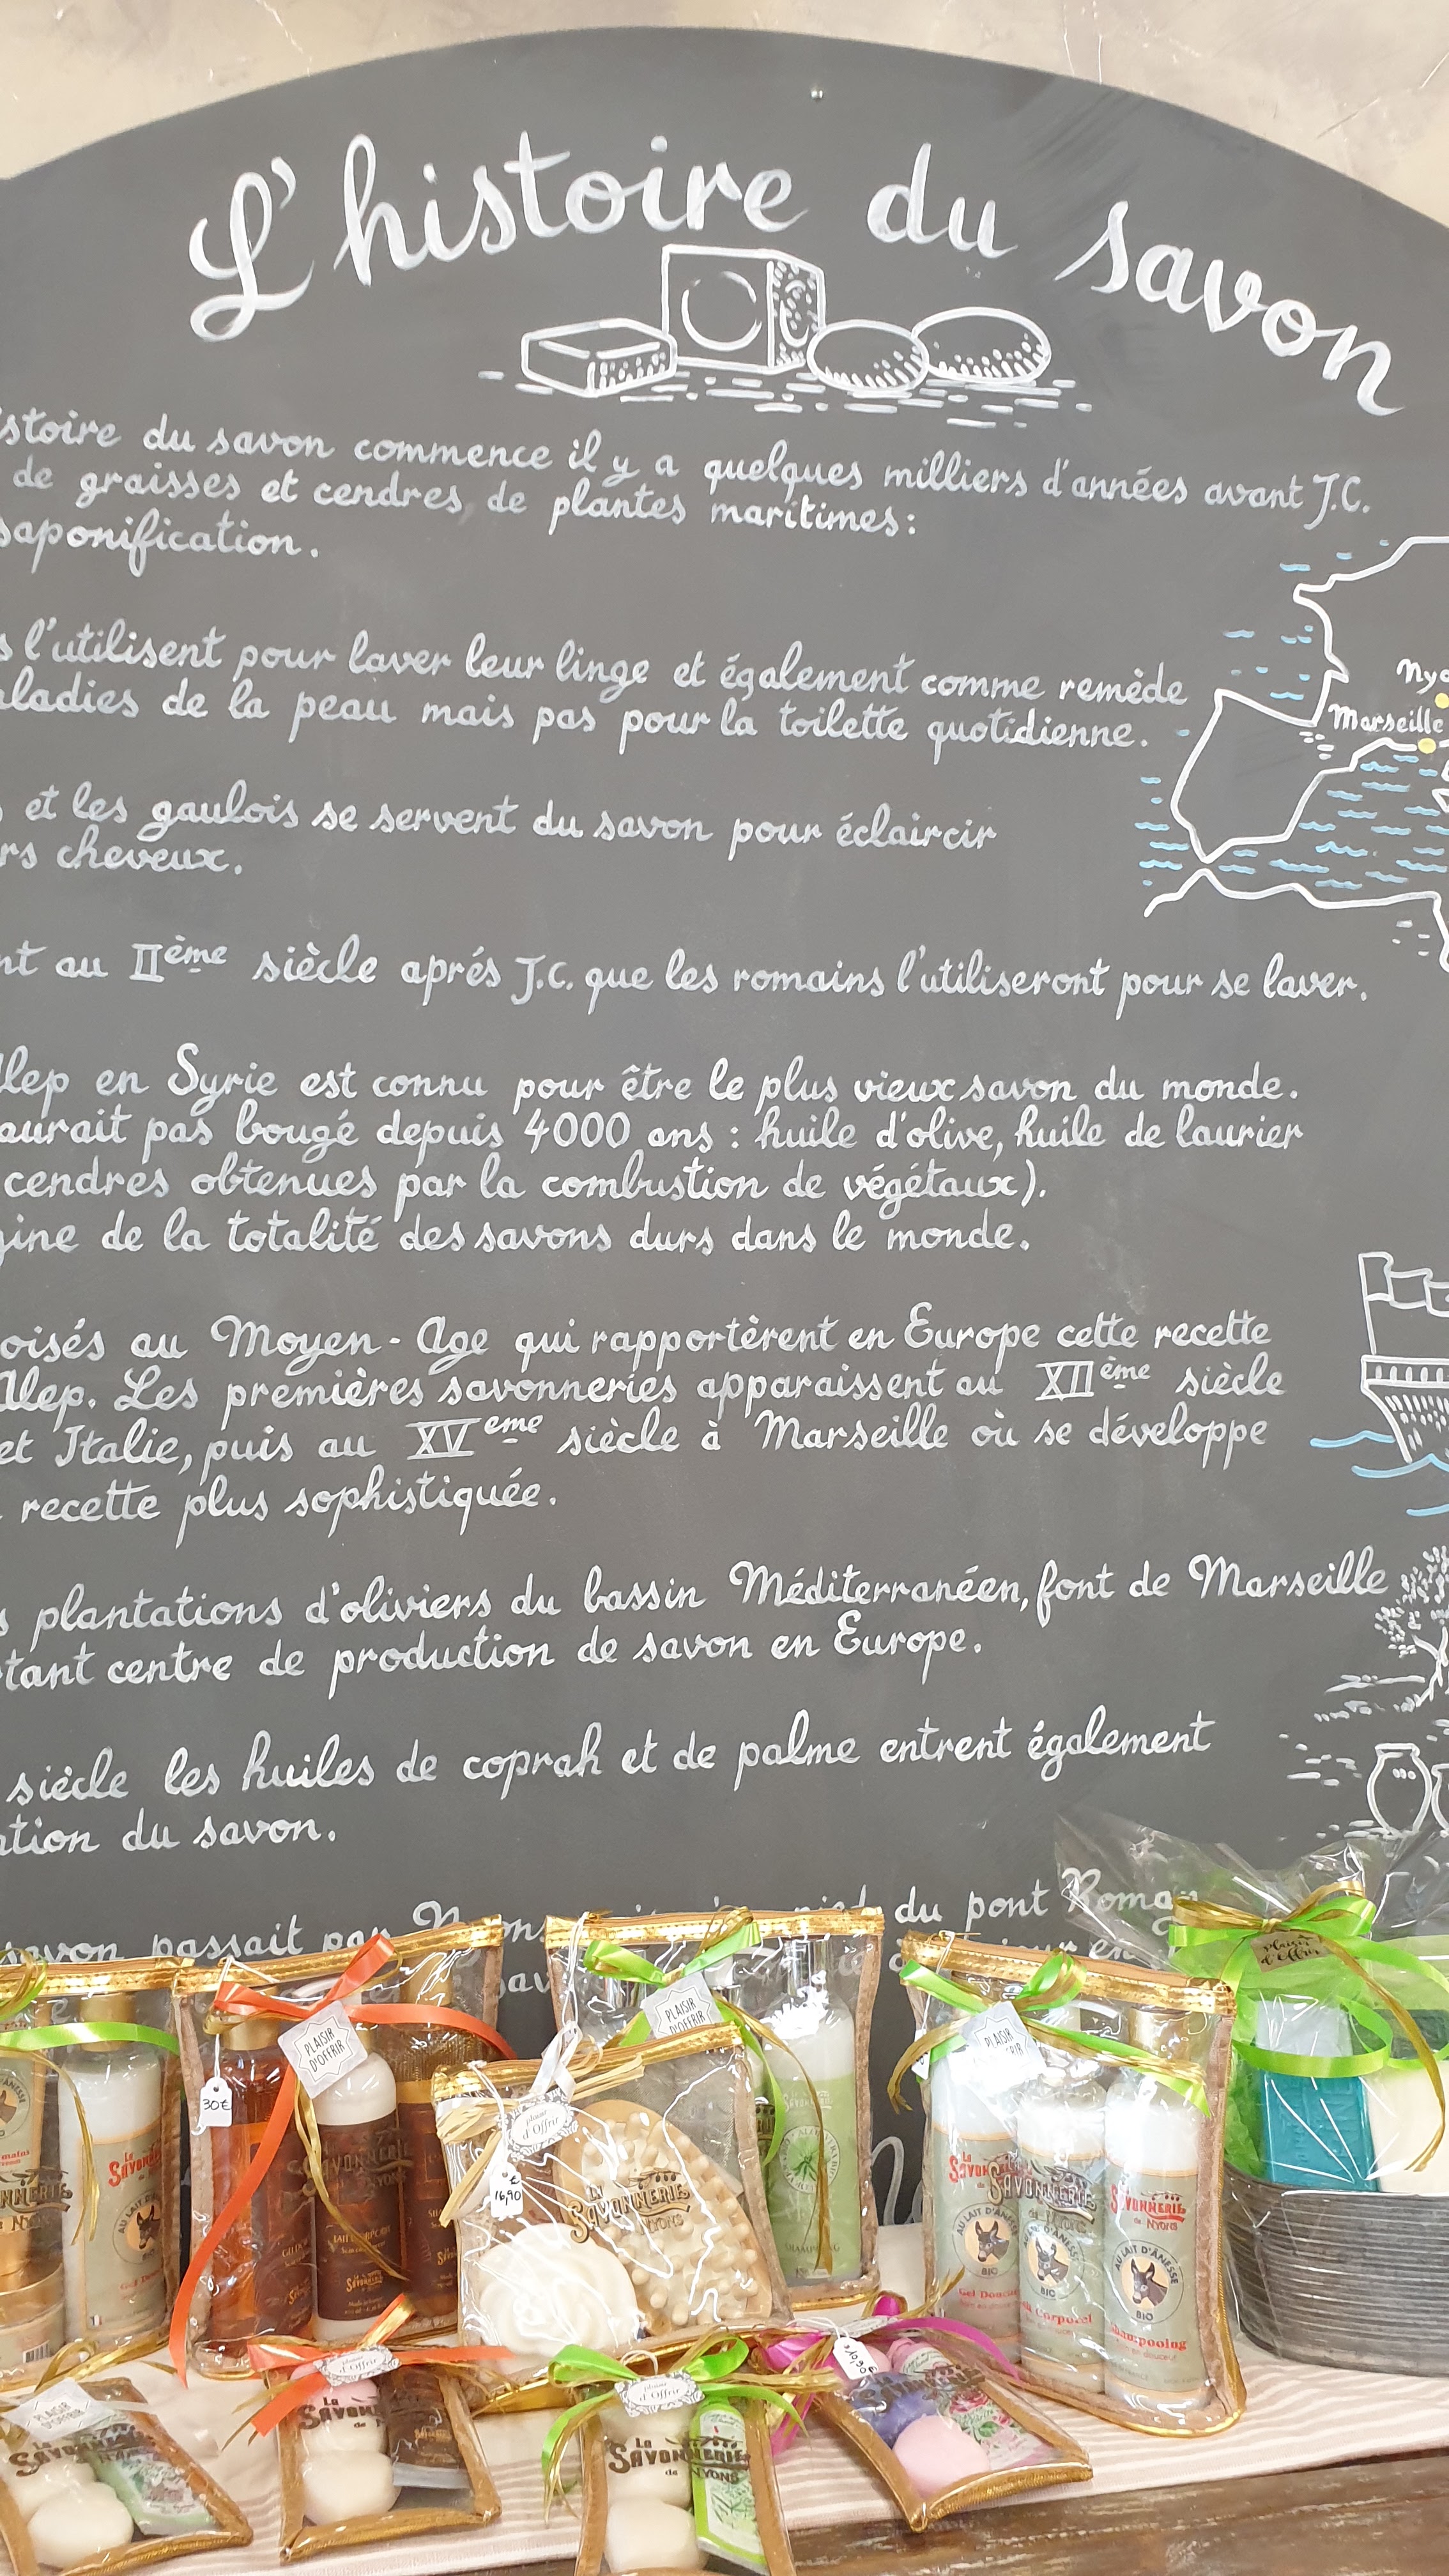 L'histoire du savon
istoire du savon commence il y a quelques milliers d'années avant J.C.
de graisses et cendres de plantes maritimes:
saponification.
s l'utilisent pour laver leur linge et également comme remède
aladies de la peau mais pas pour la toilette quotidienne.
Marseille
et les gaulois se servent du savon pour éclaircir
rs cheveux.
nt au IIème siècle aprés J.C. que les romains l'utiliseront pour se laver.
lep en Syrie est connu pour être le plus vieux savon du monde.
aurait pas bougé depuis 4000 ans : huile d'olive, huile de laurier
cendres obtenues par la combustion de végétaux).
gine de la totalité des savons durs dans le monde.
oisés au Moyen-Age qui rapportèrent en Europe cette recette
Alep. Les premières savonneries apparaissent au XIIème siècle
et Italie, puis au XVeme siècle à Marseille où se développe
recette plus sophistiquée.
s plantations d'oliviers du bassin Méditerranéen, font de Marseille
tant centre de production de savon en Europe.
siècle les huiles de coprah et de palme entrent également
ation du savon.
savon passait par du pont Roman
PLAISIR D'OFFRIR
PLAISIR D'OFFRIR
PLAISIR
plaisir d'Offrir
30€
plaisir d'Offrir
16,90
LA SAVONNERIE de NYONS
SHAMPOOING
LA SAVONNERIE de NYONS
AU LAIT D'ÂNESSE
BIO
Gel Douche
Lait Corporel
Shampooing
PLAISIR D'OFFRIR
d'Offrir
plaisir d'Offrir
10,90€
La SAVONNERIE de NYONS